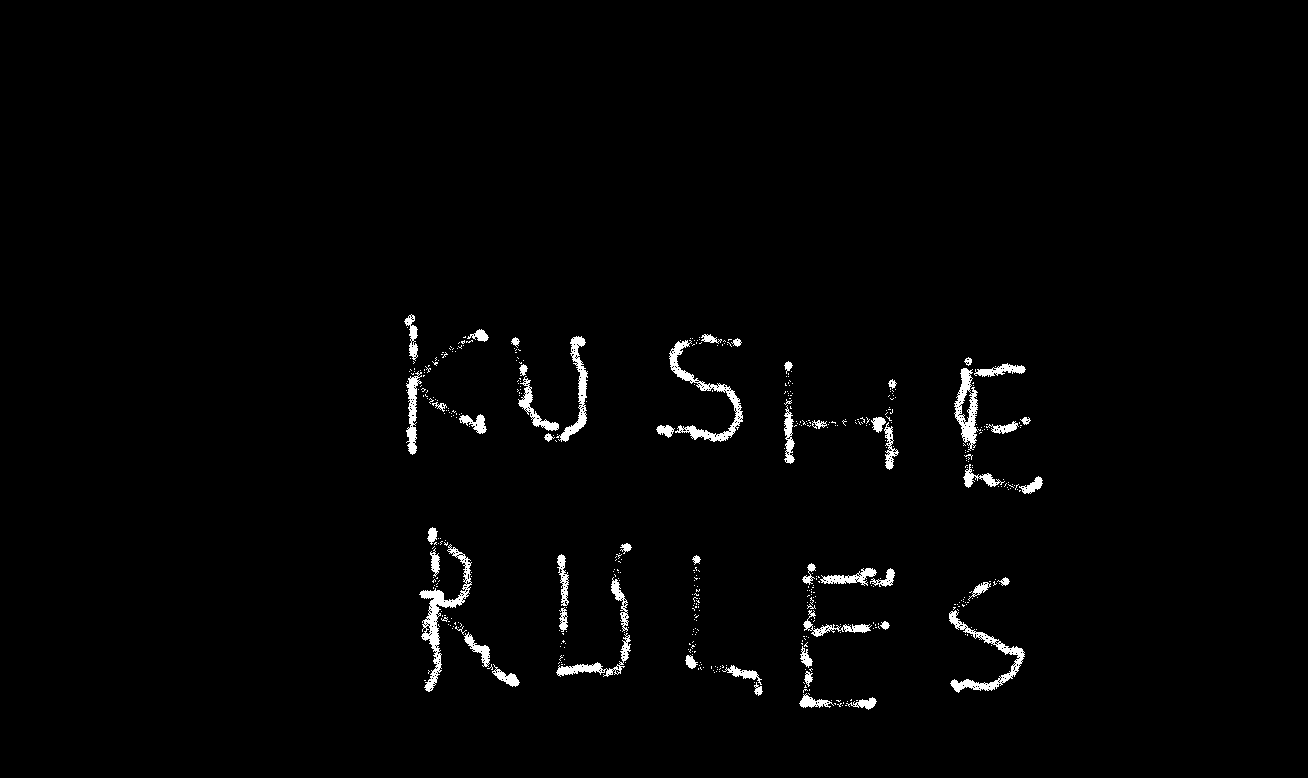 KUSHE
RULES